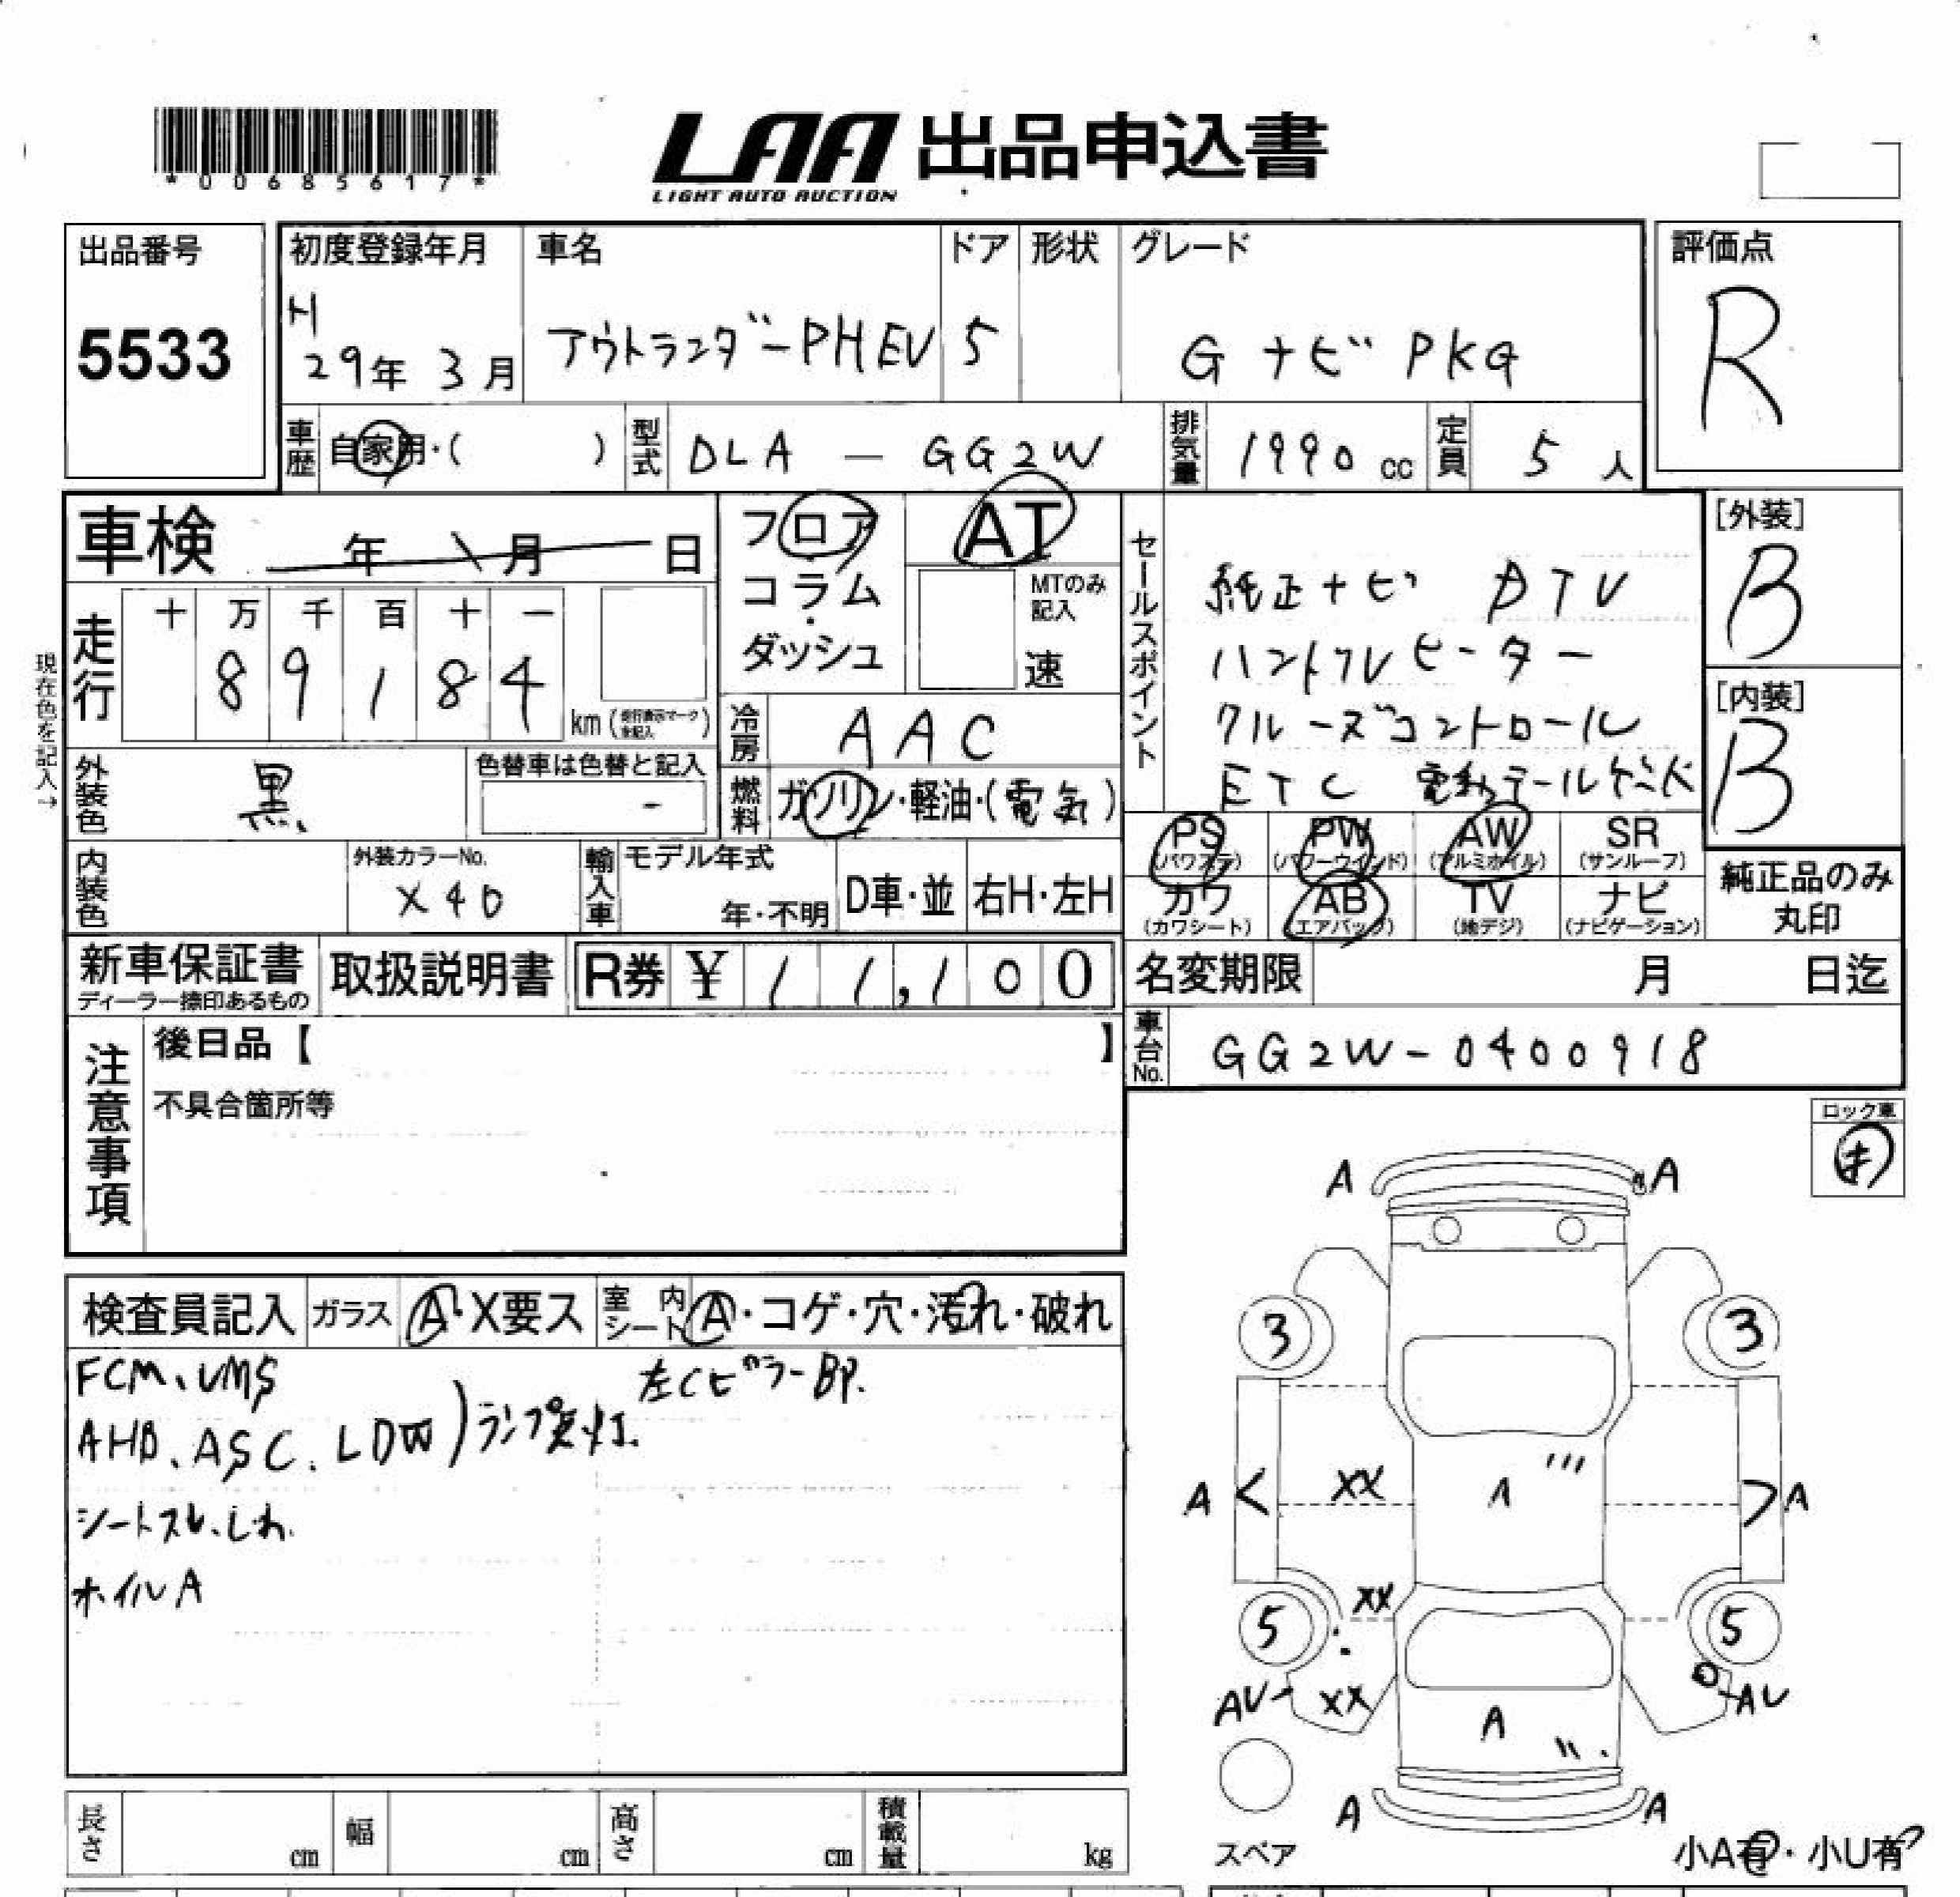 *00685617*
LAA 出品申込書
LIGHT AUTO AUCTION
出品番号
5533
初度登録年月
H
29年 3月
車名
アウトランダーPHEV
ドア
5
形状
グレード
G ナビ PKG
評価点
R
車歴 自家用・( )
型式 DLA - GG2W
排気量 1990 cc
定員 5 人
車検 年 月 日
現在色を記入→
走行
十 万 千 百 十 一
8 9 1 8 4
km (走行表示マーク を記入)
フロア
コラム
ダッシュ
AT
MTのみ
記入
速
冷房 AAC
燃料 ガソリン・軽油・(電気)
外装色 黒
色替車は色替と記入
-
内装色
外装カラーNo.
X40
輸入車
モデル年式
年・不明
D車・並
右H・左H
セールスポイント
純正ナビ DTV
ハンドルヒーター
クルーズコントロール
ETC 電動テールゲート
[外装]
B
[内装]
B
PS (パワステ)
PW (パワーウインド)
AW (アルミホイル)
SR (サンルーフ)
カワ (カワシート)
AB (エアバッグ)
TV (地デジ)
ナビ (ナビゲーション)
純正品のみ
丸印
新車保証書
ディーラー捺印あるもの
取扱説明書
R券 ¥ 11,100
名変期限 月 日迄
車台No. GG2W-0400918
注意事項
後日品【 】
不具合箇所等
ロック車
検査員記入
ガラス A・X要ス
室内シート A・コゲ・穴・汚れ・破れ
FCM、UMS
AHB、ASC、LDW)ランプ点灯.
左CピラーBP.
シートスレ、しわ.
ホイルA
A A
3 3
A XX A A
XX
5 5
AU XX AU
A
A A
スペア
小A有・小U有
長さ cm
幅 cm
高さ cm
積載量 kg